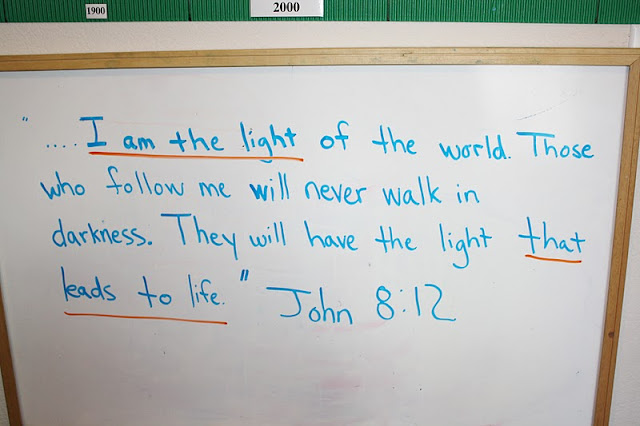 1900
2000
".... I am the light of the world. Those
who follow me will never walk in
darkness. They will have the light that
leads to life." John 8:12